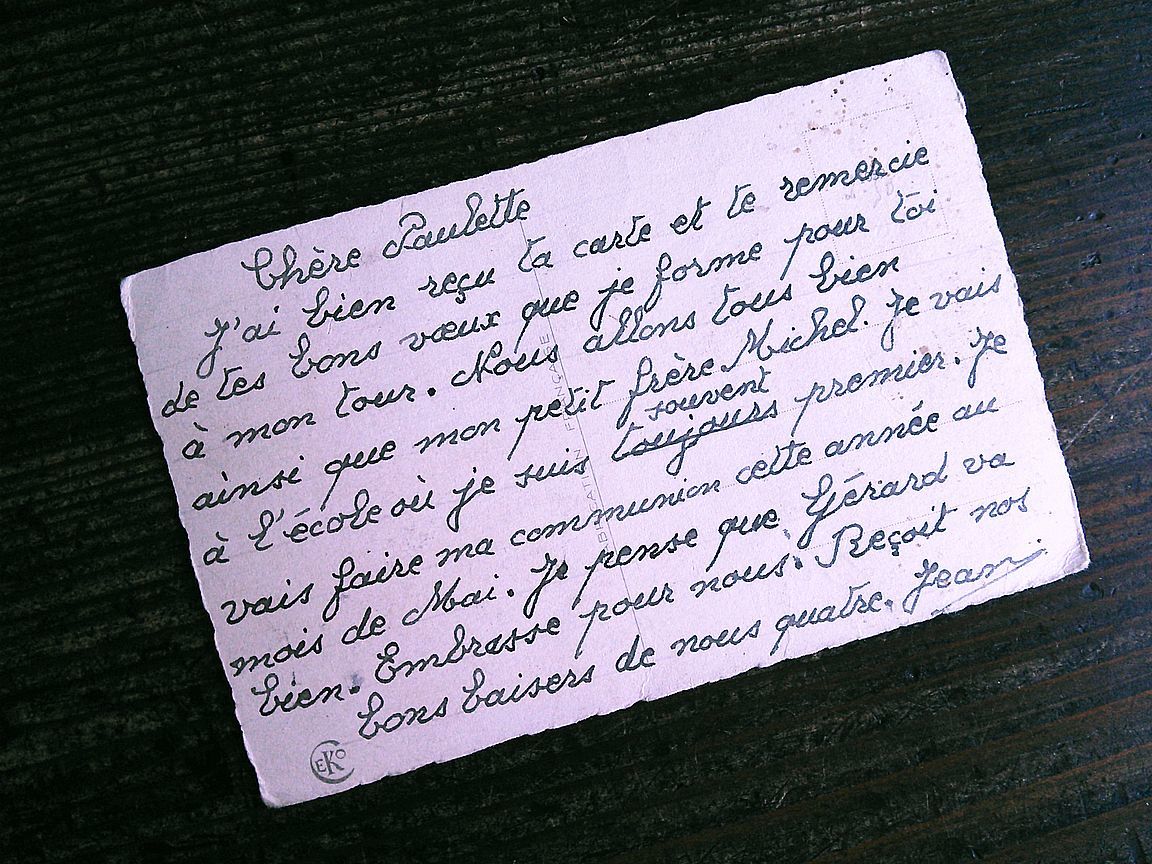 Chère Paulette
J'ai bien reçu ta carte et te remercie
de tes bons vœux que je forme pour toi
à mon tour. Nous allons tous bien
ainsi que mon petit frère Michel. Je vais
souvent
à l'école où je suis toujours premier. Je
vais faire ma communion cette année au
mois de Mai. Je pense que Gérard va
bien. Embrasse pour nous. Reçoit nos
bons baisers de nous quatre. Jean
FRANÇAISE
CEKO